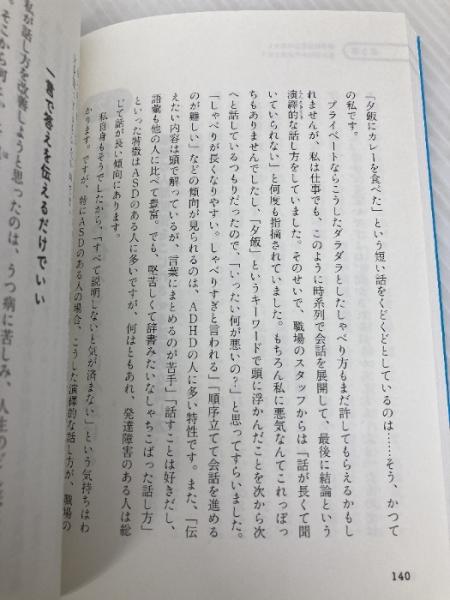 「夕飯にカレーを食べた」という短い話をくどくどとしているのは……そう、かつて
の私です。
プライベートならこうしたダラダラとしたしゃべり方もまだ許してもらえるかもし
れませんが、私は仕事でも、このように時系列で会話を展開して、最後に結論という
演繹的な話し方をしていました。そのせいで、職場のスタッフからは「話が長くて聞
いていられない」と何度も指摘されていました。もちろん私に悪気なんてこれっぽっ
ちもありませんでしたし、「夕飯」というキーワードで頭に浮かんだことを次から次
へと話しているつもりだったので、「いったい何が悪いの？」と思ってすらいました。
「しゃべりが長くなりやすい。しゃべりすぎと言われる」「順序立てて会話を進める
のが難しい」などの傾向が見られるのは、ADHDの人に多い特性です。また、「伝
えたい内容は頭で解っているが、言葉にまとめるのが苦手」「話すことは好きだし、
語彙も他の人に比べて豊富。でも、堅苦しくて辞書みたいなしゃちこばった話し方」
といった特徴はASDのある人に多いですが、何はともあれ、発達障害のある人は総
じて話が長い傾向にあります。
私自身もそうでしたから、「すべて説明しないと気が済まない」という気持ちはわ
かります。ですが、特にASDのある人の場合、こうした演繹的な話し方が、職場の
一言で答えを伝えるだけでいい
私が話し方を改善しようと思ったのは、うつ病に苦しみ、人生の
そこから何
140